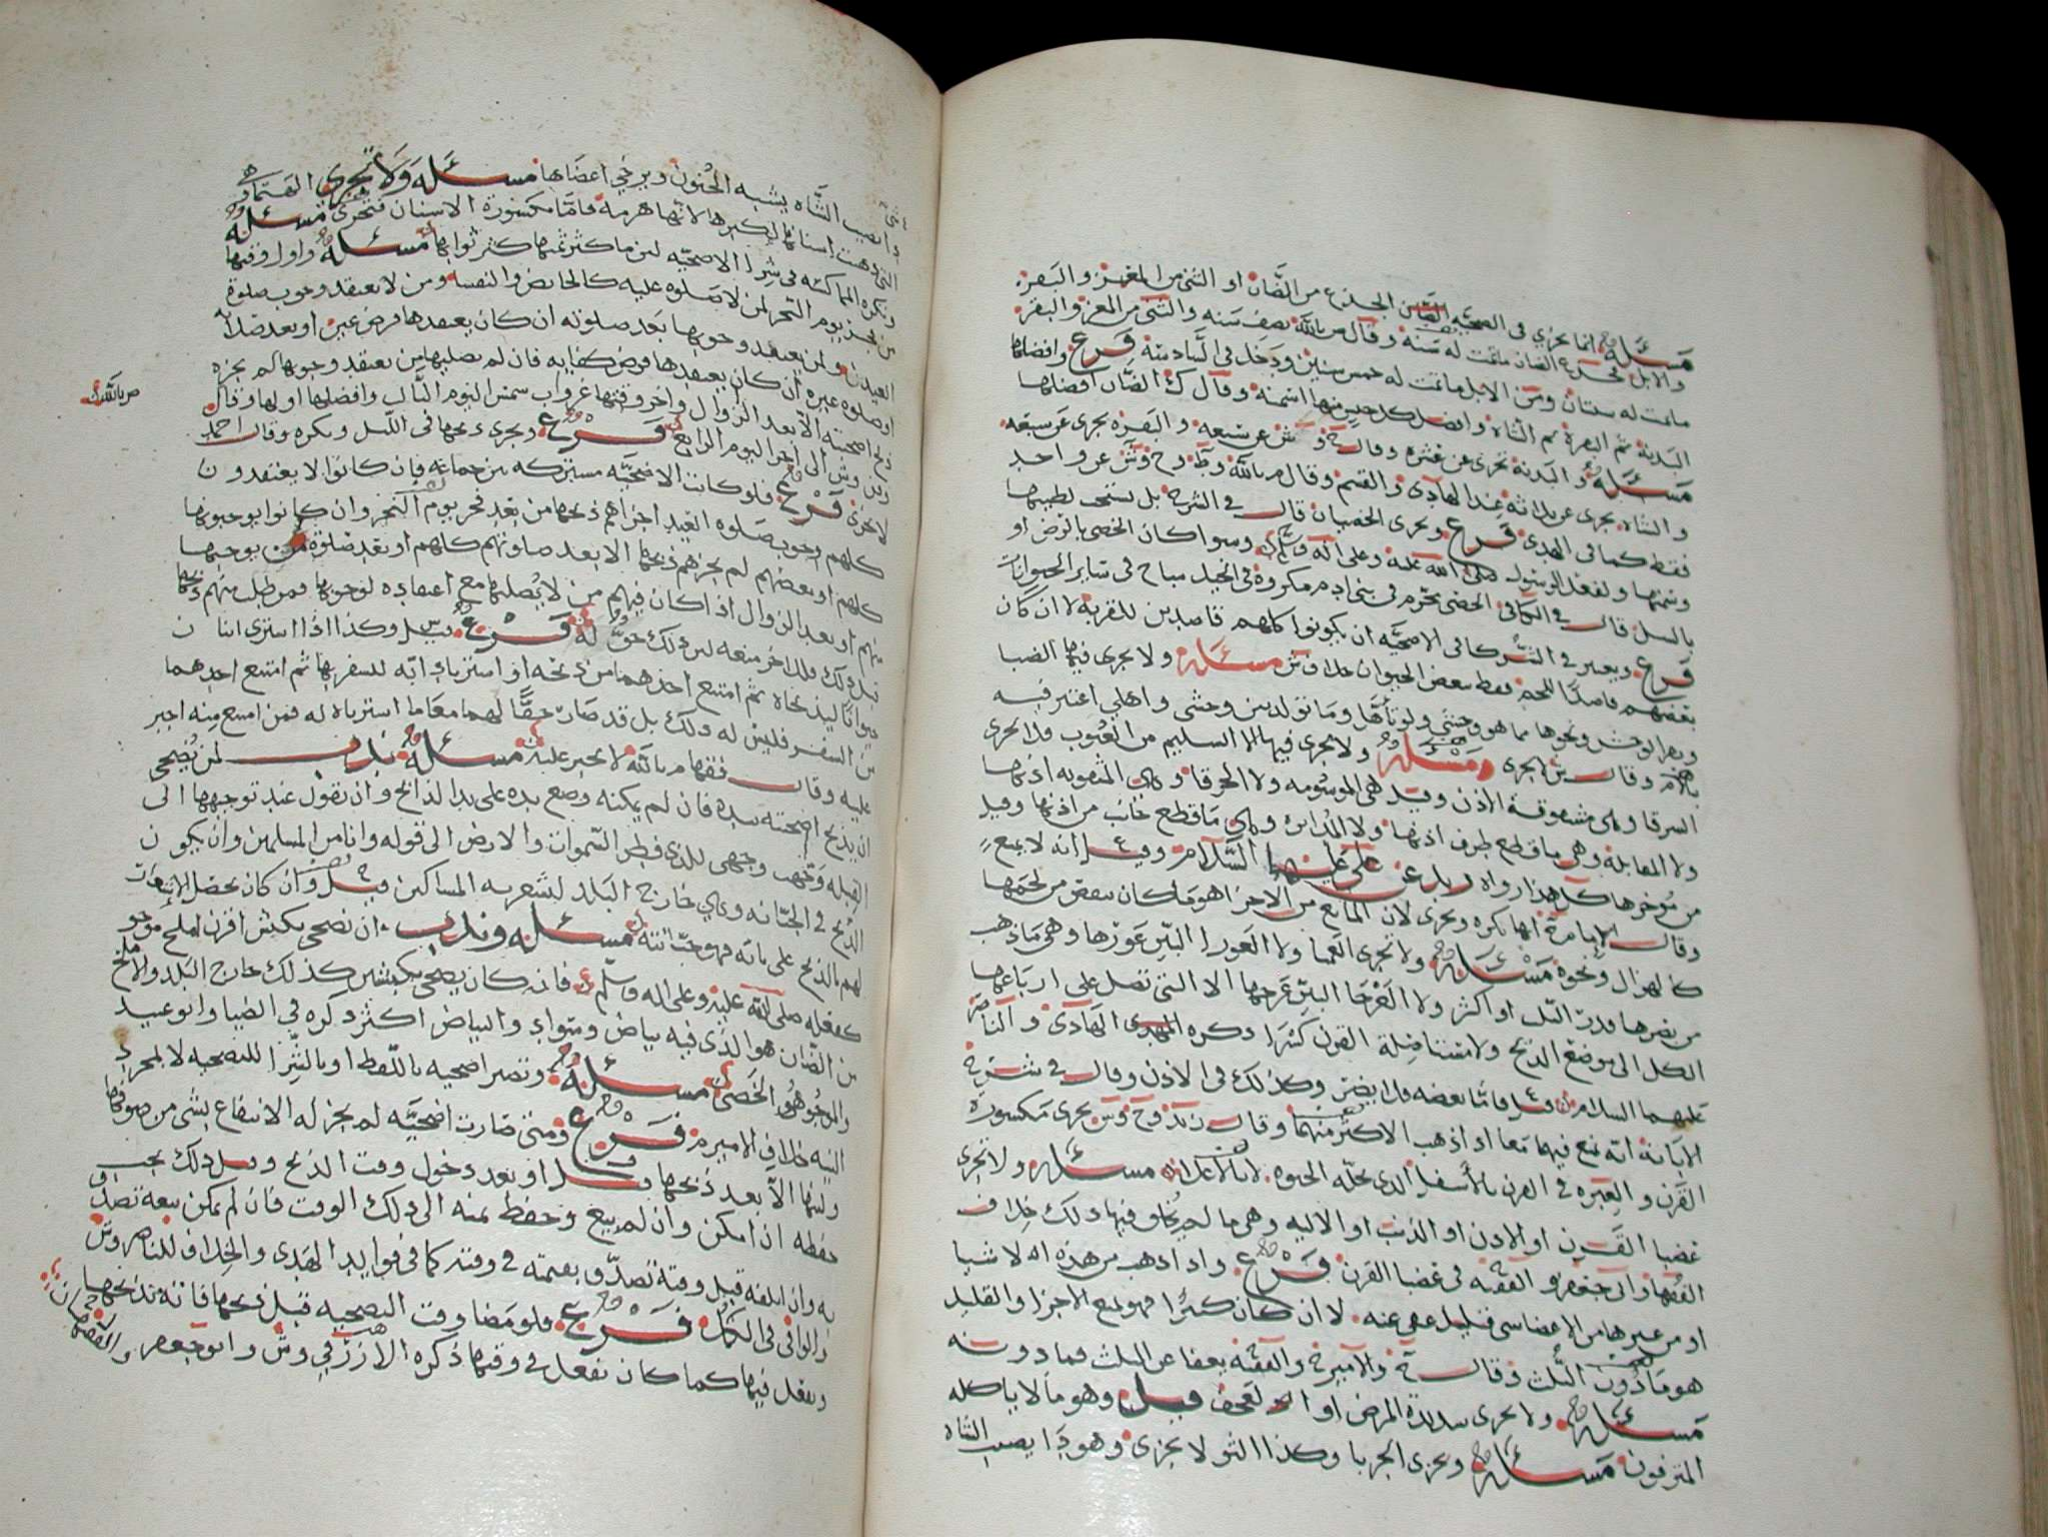 مسئلة انما يجزي في الضحية الجذع من الضأن او الثني من المعز والبقر
والابل فجذع الضان ماتمت له سنة وقال م بالله نصف سنه والثني من المعز والبقر
ماتمت له سنتان ومن الابل ماتمت له خمس سنين ودخل في السادسة فرع وافضلها
البدنة ثم البقرة ثم الشاة وافضل كل جنس منها اسمنه وقال ك الضان افضلها
مسئلة و البدنة تجزى عن عشرة وقال ش عن سبعه والبقرة يجزى عن سبعه
والشاة يجزى عن ثلاثة عند الهادي والقسم وقال م بالله وط وح وش عن واحد
فقط كما في الهدي فرع ويجزى الخصيان قال في الشرح بل يستحب لطيبها
وسمنها ولفعل الرسول صلى الله عليه وعلى اله وسلم وسوا كان الخصي بالرض او
بالسل قال في الكافي الخصي محرم في بني ادم مكروه في الخيل مباح في سائر الحيوانات
فرع ويعتبر في الشركا في الاضحيه ان يكونوا كلهم قاصدين للقربة لا ان كان
بعضهم قاصدا للحم فقط مسئلة ولا يجزى فيها الضبا
وبقر الوحش ونحوها مما هو وحشي ولو تأهل وما تولد بين وحشي واهلي اعتبر فيه
بالام وقال ش لا يجزى مسئلة ولا يجزى فيها الا السليم من العيوب فلا يجزى
الشرقا وهي مشقوقة الاذن وقيل هي الموسومه ولا الخرقا وهي المثقوبه اذنها
ولا المقابلة وهي ما قطع طرف اذنها ولا المدابرة وهي ما قطع جانب من اذنها وقيل
من مؤخرها كل هذا رواه زيد عن علي عليهما السلام وقيل انه لا يمنع
وقال الامامية انها تكره ويجزى لان المانع من الاجزا هو ما كان ينقص من لحمها
كالهزال ونحوه مسئلة ولا تجزى العميا ولا العورا البين عورها وهي ما ذهب
من بصرها قدر الثلث او اكثر ولا العرجا البين عرجها الا التي تصل على ارباعها
الكل الى موضع الذبح ولا مستاصلة القرن كسرا ذكره الهادي والناصر
عليهما السلام فاما بعضه فلا يضر وكذلك في الاذن وقال في شرح
الابانة انه يمنع فيهما معا اذا ذهب الاكثر منهما وقال ز وح وش يجزى مكسورة
القرن والعبرة في القرن بالأسفل الذي تحله الحيوه لا بالاعلا مسئلة ولا تجزى
عضبا القرن او الاذن او الذنب او الاليه وهي ما لم يخلق فيها ذلك خلاف
الفقها وابي جعفر والفقيه في عضبا القرن فرع واذا ذهب من هذه
او من غيرها من الاعضا شي قليل عفي عنه لا ان كان كثيرا فهو يمنع الاجزا والقليل
هو ما دون الثلث وقال والفقيه يعفا عن الثلث فما دونه
مسئلة ولا يجزى شديدة المرض او العجف قيل وهو ما لا ياكله
المترفون مسئلة ويجزى الجربا وكذا الثولا يجزى وهو دا يصيب الشاه
دا يصيب الشاه يشبه الجنون ويرخي اعضاها مسئلة ولا تجزى الهتما
التي ذهبت اسنانها لكبرها لانها هرمة فاما مكسورة الاسنان فتجزى مسئلة
وتكره المماكسه في شرا الاضحيه لان ما كثر ثمنها كثر ثوابها مسئلة واول وقتها
من فجر يوم النحر لمن لا صلوه عليه كالحايض والنفسا ومن لا يعتقد وجوب صلوة
العيد ولمن يعتقد وجوبها بعد صلوته ان كان يعتقدها فرض عين او بعد صلاته
او صلوه غيره ان كان يعتقدها فرض كفايه فان لم يصليها من يعتقد وجوبها لم يجزه
ذبح اضحيته الا بعد الزوال واخر وقتها غروب شمس اليوم الثالث وافضلها اولها وقال
وش الى اخر اليوم الرابع فرع ويجزى ذبحها في الليل ويكره وقال احمد
لا يجزى فرع فلو كانت الاضحيه مشتركه بين جماعه فان كانوا لا يعتقدون
كلهم وجوب صلوه العيد اجزاهم ذبحها من بعد فجر يوم النحر وان كانوا يوجبونها
كلهم او بعضهم لم يجزهم ذبحها الا بعد صلوتهم كلهم او بعد صلوة من يوجبها
منهم او بعد الزوال اذا كان فيهم من لا يصليها مع اعتقاده لوجوبها فمن طلب منهم ذبحها
قبل ذلك فللاخر منعه لان ذلك حق له فرع وكذا اذا اشترى اثنان
حيوانا ليذبحاه ثم امتنع احدهما من ذبحه او اشتريا دابه للسفر بها ثم امتنع احدهما
من السفر فليس له ذلك بل قد صار حقا لهما معا اذا اشترياه له فمن امتنع منه اجبر
عليه وقال م بالله لا يجبر عليه مسئلة ندب لمن يضحي
ان يذبح اضحيته بيده فان لم يمكنه وضع يده على يد الذابح وان يقول عند توجيهها الى
القبله وجهت وجهي للذي فطر السموات والارض الى قوله وانا من المسلمين وان يكون
الذبح في الجبانه وهي خارج البلد ليشعر به المساكين وان كان يحصل
لهم بالذبح على بابه فهو جبانته مسئلة وندب ان يضحى بكبش اقرن املح موجو
كفعله صلى الله عليه وعلى اله وسلم فانه كان يضحي بكبشين كذلك خارج البلد والاملح
من الضان هو الذي فيه بياض وسواد والبياض اكثر ذكره في الضيا وابو عبيد
والموجو هو الخصي مسئلة وتصير اضحيه باللفظ او بالشرا للتضحيه لا بمجرد
النيه خلاف الامير م فرع ومتى صارت اضحيه لم يجز له الانتفاع بشي من صوفها
ولبنها الا بعد ذبحها او بعد دخول وقت الذبح وقبل ذلك يجب
حفظه ان امكن وان لم بيع وحفظ ثمنه الى ذلك الوقت فان لم يمكن بيعه تصدق
به وان اتلفه قبل وقته تصدق بقيمته في وقته كما في فوايد الهدي والخلاف للناصر وش
والوافي في الكل فرع فلو مضا وقت التضحيه قبل ذبحها فانه يذبحها
ويفعل فيها كما كان يفعل في وقتها ذكره الازرقي وش وابو جعفر والفقهان
م بالله